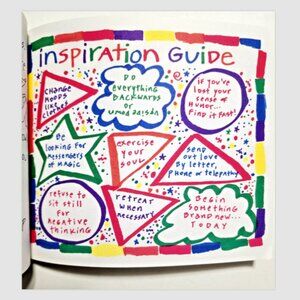 inspiration Guide
CHANGE
MOODS
like
clothes
DO
everything
BACKWARDS
or
if you've
lost your
sense of
Humor...
Find it fast!
Be
looking for
messengers
of magic
exercise
your
soul
send
out love
by letter,
phone or telepathy
refuse to
sit still
for
negative
thinking
retreat
when
necessary
Begin
something
Brand new...
TODAY